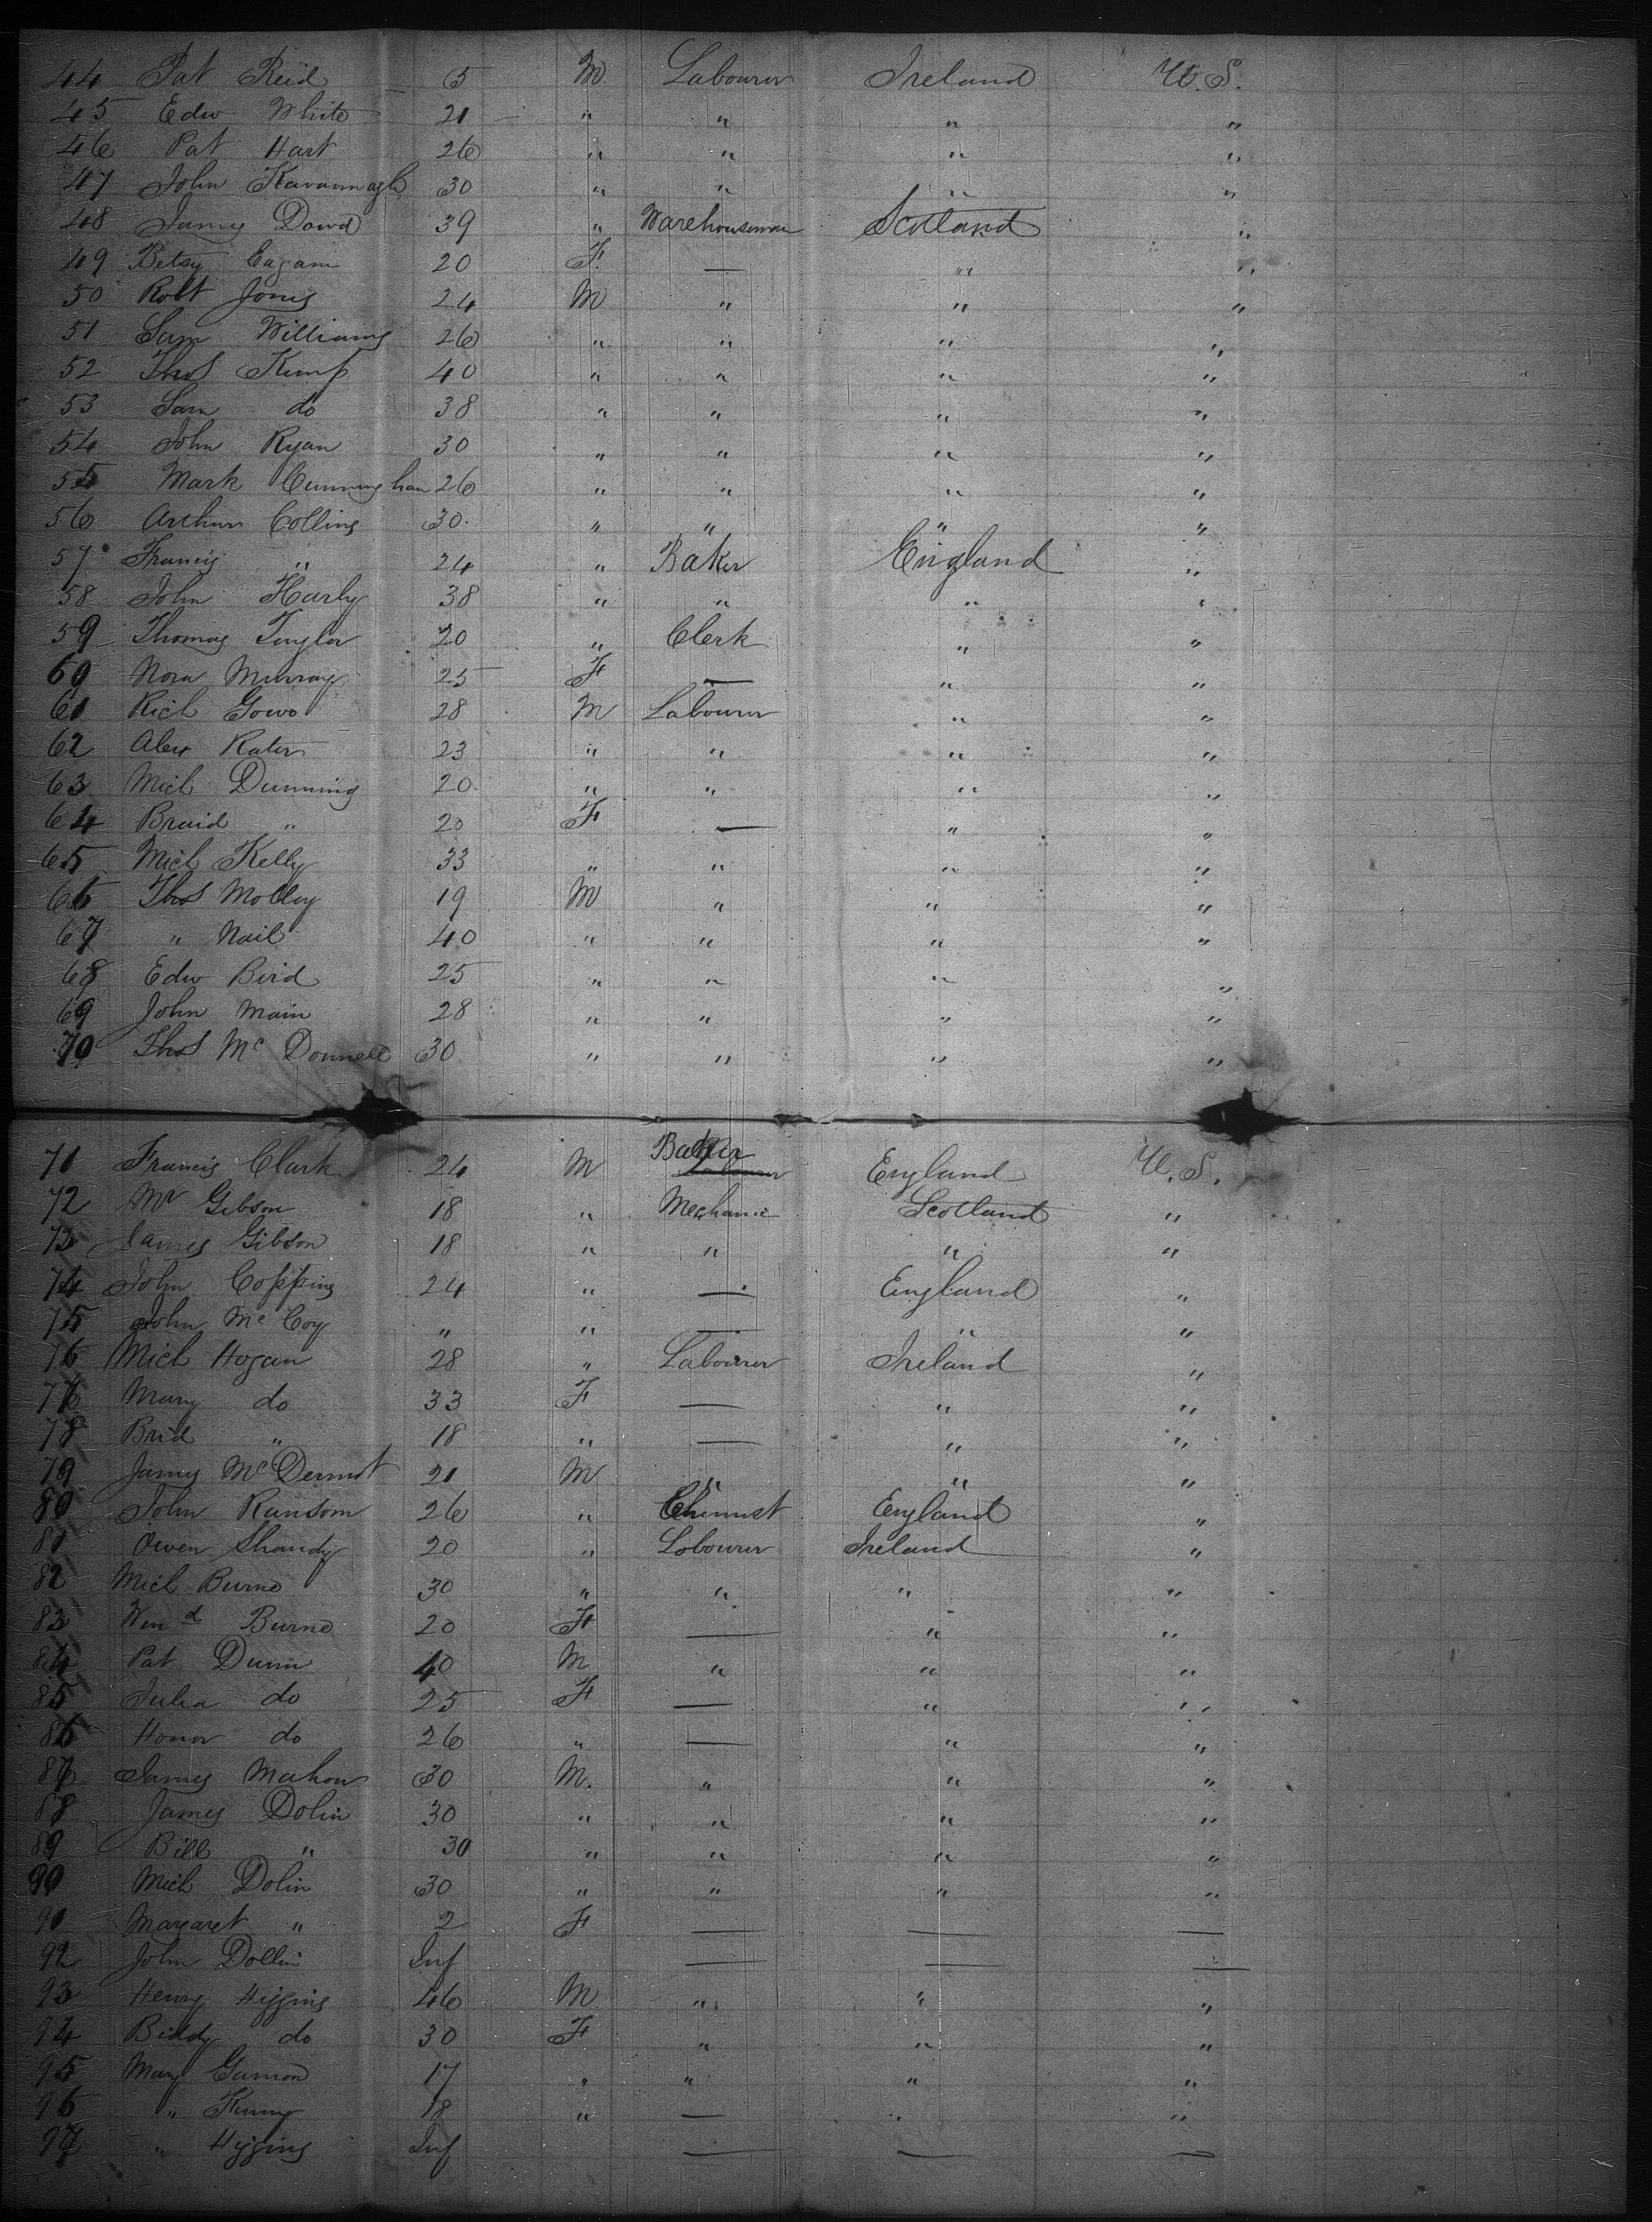 44 Pat Reid 5 M Labourer Ireland U.S.
45 Edw White 21 " " " "
46 Pat Hart 26 " " " "
47 John Kavannagh 30 " " " "
48 James Dowd 39 " Warehouseman Scotland "
49 Betsy Eagan 20 F. — " "
50 Robt Jones 24 M " " "
51 Sam Williams 26 " " " "
52 Thos Kemp 40 " " " "
53 Sam do 38 " " " "
54 John Ryan 30 " " " "
55 Mark Cunningham 26 " " " "
56 Arthur Collins 30. " " " "
57 Francis " 24 " Baker England "
58 John Harly 38 " " " "
59 Thomas Taylor 20 " Clerk " "
60 Nora Murray 25 F — " "
61 Rich 28 M Labourer " "
62 Alex 23 " " " "
63 Mich Dunning 20 " " " "
64 Braid " 20 F — " "
65 Mich Kelly 33 " " " "
66 Thos Molloy 19 M " " "
67 " Nail 40 " " " "
68 Edw Bird 25 " " " "
69 John Main 28 " " " "
70 Thos Mc Donnell 30 " " " "
71 Francis Clark 24 M Baker England U.S.
72 Mr Gibson 18 " Mechanic Scotland "
73 James Gibson 18 " " " "
74 John Copping 24 " — England "
75 John Mc Coy " " — " "
76 Mich Hogan 28 " Labourer Ireland "
77 Mary do 33 F — " "
78 Brid " 18 " — " "
79 James McDermot 21 M " " "
80 John Ransom 26 " Chemist England "
81 Owen Shandy 20 " Labourer Ireland "
82 Mich Burne 30 " " " "
83 Burne 20 F — " "
84 Pat Dunn 40 M " " "
85 Julia do 25 F — " "
86 Honor do 26 " — " "
87 James Mahon 30 M. " " "
88 James Dolin 30 " " " "
89 Bill " 30 " " " "
90 Mich Dolin 30 " " " "
91 Margaret " 2 F — — —
92 John Dollin Inf — — —
93 Henry Higgins 46 M " " "
94 Biddy do 30 F " " "
95 Mary Gannon 17 " " " "
96 " Kenny 18 " — " "
97 " Higgins Inf — — —